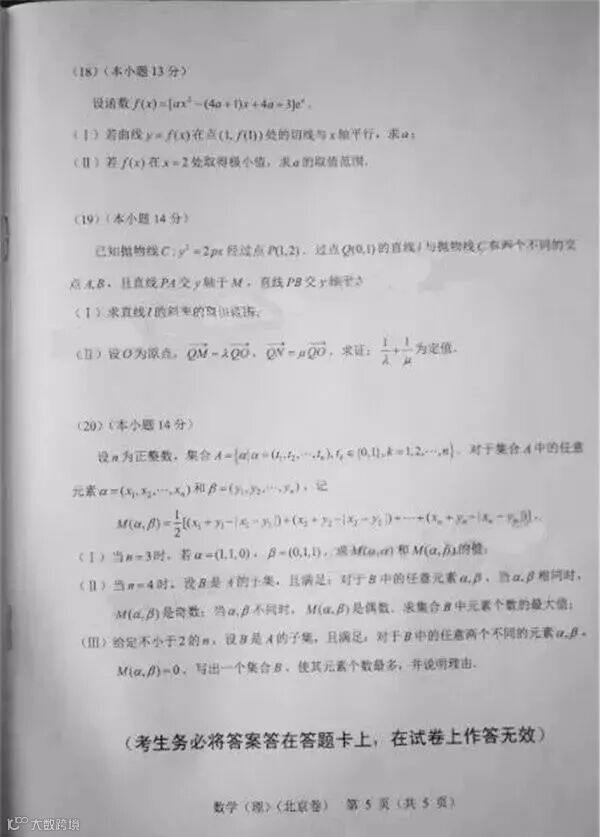 (18)(本小题13分)
设函数 f(x)=[ax²-(4a+1)x+4a+3]eˣ.
(Ⅰ)若曲线 y=f(x) 在点 (1,f(1)) 处的切线与 x 轴平行,求 a;
(Ⅱ)若 f(x) 在 x=2 处取得极小值,求 a 的取值范围.
(19)(本小题14分)
已知抛物线 C:y²=2px 经过点 P(1,2). 过点 Q(0,1) 的直线 l 与抛物线 C 有两个不同的交
点 A,B,且直线 PA 交 y 轴于 M,直线 PB 交 y 轴于
(Ⅰ)求直线 l 的斜率的取值范围;
(Ⅱ)设 O 为原点,QM=λQO,QN=μQO,求证:1/λ+1/μ 为定值.
(20)(本小题14分)
设 n 为正整数,集合 A={α|α=(t₁,t₂,⋯,tₙ),tₖ∈{0,1},k=1,2,⋯,n}. 对于集合 A 中的任意
元素 α=(x₁,x₂,⋯,xₙ) 和 β=(y₁,y₂,⋯,yₙ),记
M(α,β)=1/2[(x₁+y₁-|x₁-y₁|)+(x₂+y₂-|x₂-y₂|)+⋯+(xₙ+yₙ-|xₙ-yₙ|)].
(Ⅰ)当 n=3 时,若 α=(1,1,0),β=(0,1,1),求 M(α,α) 和 M(α,β) 的值;
(Ⅱ)当 n=4 时,设 B 是 A 的子集,且满足:对于 B 中的任意元素 α,β,当 α,β 相同时,
M(α,β) 是奇数;当 α,β 不同时,M(α,β) 是偶数. 求集合 B 中元素个数的最大值;
(Ⅲ)给定不小于2的 n,设 B 是 A 的子集,且满足:对于 B 中的任意两个不同的元素 α,β,
M(α,β)=0. 写出一个集合 B,使其元素个数最多,并说明理由.
(考生务必将答案答在答题卡上,在试卷上作答无效)
数学(理)(北京卷) 第 5 页(共 5 页)
大数跨境